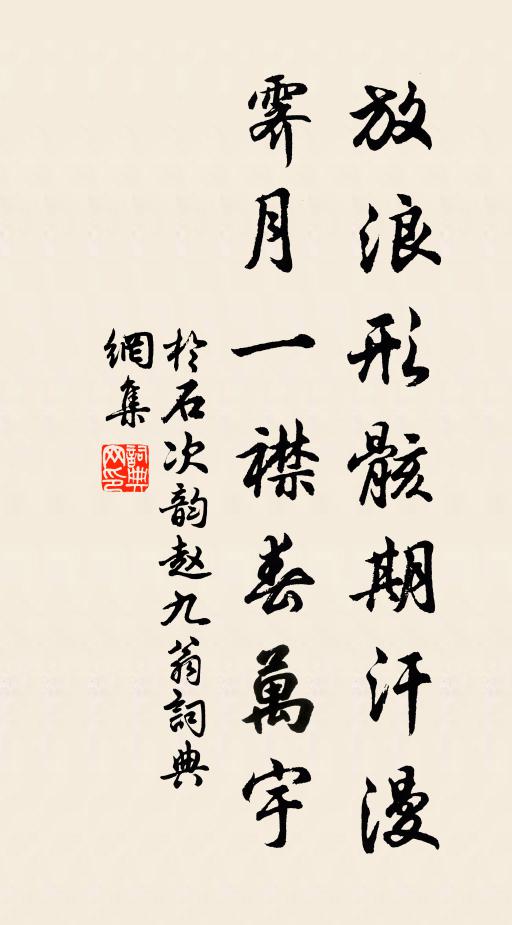 放浪形骸期汗漫
霽月一襟春萬宇
於石次韵赵九翁詞典
網集
詞典网印